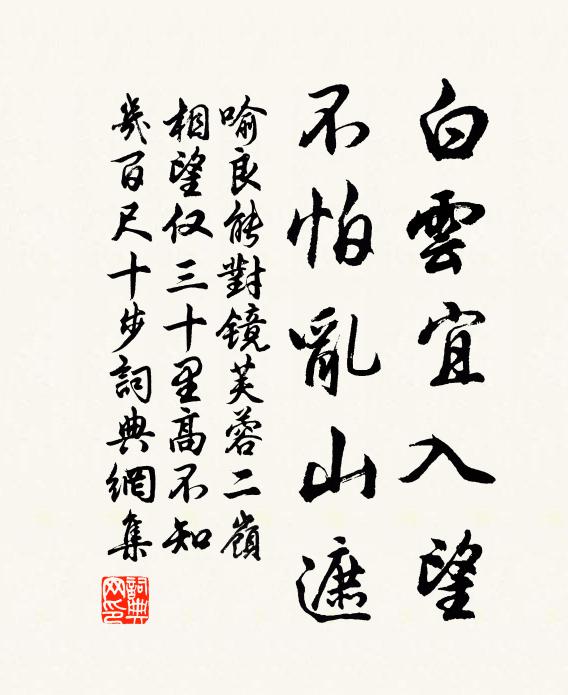 白雲宜入望
不怕亂山遮
喻良能對镜芙蓉二嶺
相望仅三十里高不知
幾百尺十步詞典網集
詞典
网印